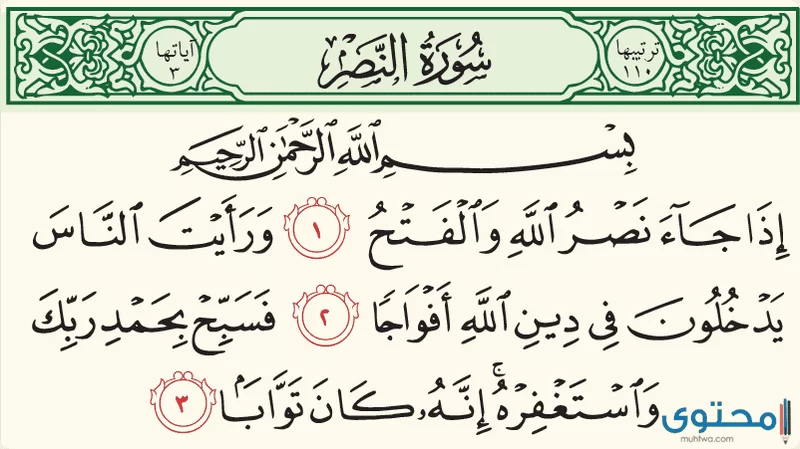 ترتيبها ١١٠ سُورَةُ النَّصْرِ آياتها ٣
بِسْمِ ٱللَّهِ ٱلرَّحْمَٰنِ ٱلرَّحِيمِ
إِذَا جَآءَ نَصْرُ ٱللَّهِ وَٱلْفَتْحُ ١ وَرَأَيْتَ ٱلنَّاسَ
يَدْخُلُونَ فِى دِينِ ٱللَّهِ أَفْوَاجًا ٢ فَسَبِّحْ بِحَمْدِ رَبِّكَ
وَٱسْتَغْفِرْهُ ۚ إِنَّهُۥ كَانَ تَوَّابَۢا ٣
محتوى
muhtwa.com